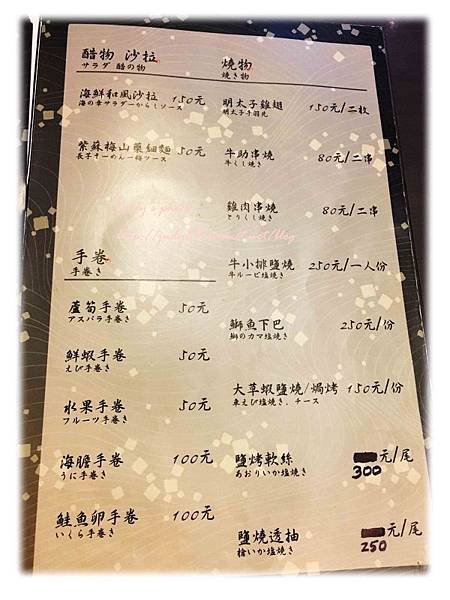 醋物 沙拉
サラダ 醋の物
海鮮和風沙拉 150元
海の幸サラダーからしソース
紫蘇梅山藥細麵 50元
長子そーめん一梅ソース
手卷
手卷き
蘆筍手卷 50元
アスパラ手卷き
鮮蝦手卷 50元
えび手卷き
水果手卷 50元
フルーツ手卷き
海膽手卷 100元
うに手卷き
鮭魚卵手卷 100元
いくら手卷き
燒物
燒き物
明太子雞翅 150元/二枚
明太子手羽先
牛助串燒 80元/二串
牛くし燒き
雞肉串燒 80元/二串
とりくし燒き
牛小排鹽燒 250元/一人份
牛ルービ塩燒き
鰤魚下巴 250元/份
鰤のカマ塩燒き
大草蝦鹽燒/焗烤 150元/份
車えび塩燒き、チース
鹽烤軟絲 元/尾
あおりいか塩燒き 300
鹽燒透抽 元/尾
槍いか塩燒き 250